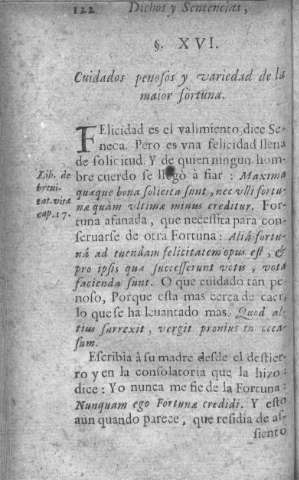 122 Dichos y Sentencias,
§. XVI.
Cuidados penosos y variedad de la
maior fortuna.
FElicidad es el valimiento, dice Se-
neca. Pero es vna felicidad llena
de solicitud. Y de quien ningun hom-
bre cuerdo se llegò a fiar : Maxima
quæque bona solicita sunt, nec vlli fortu-
næ quam vltimæ minus creditur. For-
tuna afanada, que necessita para con-
seruarse de otra Fortuna : Aliâ fortu-
nâ ad tuendam felicitatem opus est, &
pro ipsis quæ successerunt votis, vota
facienda sunt. O que cuidado tan pe-
noso, Porque esta mas cerca de caer,
lo que se ha leuantado mas. Quod al-
tius surrexit, vergit pronius in occa-
sum.
Lib. de
breui-
tat. vitæ
cap. 17.
Escribia à su madre desde el destier-
ro y en la consolatoria que la hizo:
dice : Yo nunca me fie de la Fortuna:
Nunquam ego Fortunæ credidi. Y esto
aun quando parece, que residia de as-
siento